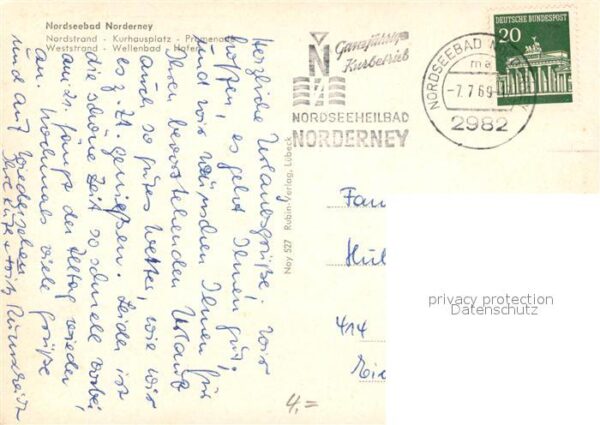 Nordseebad Norderney
Nordstrand - Kurhausplatz - Promenade
Weststrand - Wellenbad - Hafen
Herzliche Urlaubsgrüße. Wir
hoffen, es geht Ihnen gut,
und wir wünschen Ihnen für
Ihren bevorstehenden Urlaub
auch so gutes Wetter, wie wir
es z. Zt. genießen. Leider ist
die schöne Zeit so schnell vorbei,
am 21. fängt der Alltag wieder
an. Nochmals viele Grüße
und auf Wiedersehen
Ihre
Noy 527 Rubin-Verlag, Lübeck
Ganzjährige
Kurbetrieb
N
NORDSEEHEILBAD
NORDERNEY
NORDSEEBAD N
ma
-7.7.69
2982
DEUTSCHE BUNDESPOST
20
Fam
414
4,=
privacy protection
Datenschutz